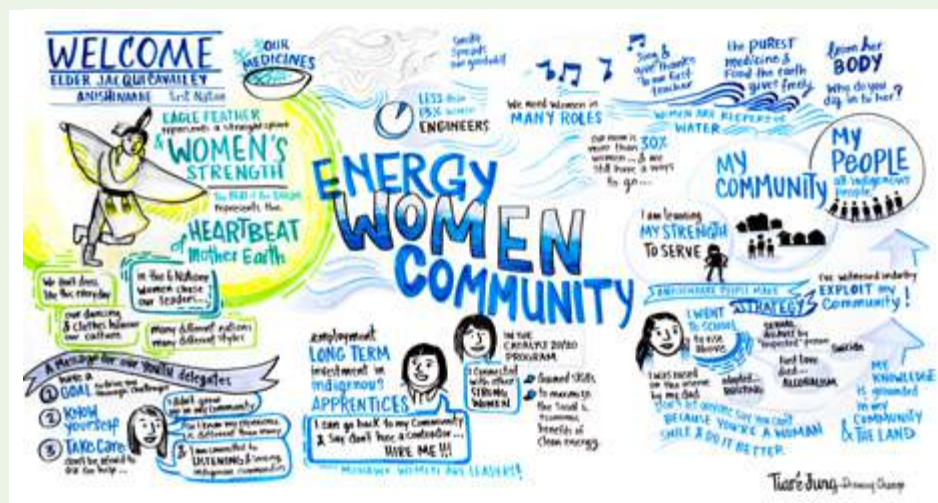 WELCOME
ELDER JACQUI LAVALLEY
ANISHINAABE First Nation
OUR
MEDICINES
EAGLE FEATHER
represents a straight spine
& WOMEN'S
STRENGTH
The BEAT of the DRUM
represents the
HEARTBEAT
of Mother Earth
We don't dress
like this everyday
our dancing
& clothes honour
our culture
in the 6 Nations
Women chose
our leaders...
many different nations
many different styles
A Message for our Youth delegates
① have a
GOAL to drive you
through challenges
② KNOW
yourself
③ TAKE CARE
don't be afraid to
ask for help...
I didn't grow
up in my community
so I know my experience
is different than many
& I am committed to
LISTENING & serving
indigenous communities
smoke
spreads
our goodwill
LESS than
13% women
ENGINEERS
We need Women in
MANY ROLES
Sing &
give thanks
to our first
teacher
the PUREST
medicine &
Food the earth
gives freely
from her
BODY
Why do you
dig in to her?
WOMEN ARE KEEPERS OF
WATER
our room is
more than 30%
women... & we
still have a ways
to go...
ENERGY
WOMEN
COMMUNITY
MY
COMMUNITY
MY
PEOPLE
all indigenous
people
I am learning
MY STRENGTH
TO SERVE
ANISHINAABE PEOPLE MAKE
STRATEGY
I've witnessed industry
EXPLOIT my
Community!
I WENT
TO SCHOOL
to rise
above
sexual
assault by
"respected" person
suicide
first love
died...
ALCOHOLISM
adopted...
I was raised
on the reserve
by my dad
Don't let anyone say you can't
BECAUSE YOU'RE A WOMAN
SMILE & DO IT BETTER
MY
KNOWLEDGE
is grounded
in my
COMMUNITY
& THE LAND
employment
LONG TERM
investment in
indigenous
APPRENTICES
I can go back to my Community
& Say don't hire a contractor...
HIRE ME!!!
MOHAWK WOMEN ARE LEADERS!
IN THE
CATALYST 20/20
PROGRAM
I connected
with other
STRONG
WOMEN
& gained skills
to maximize
the social &
economic
benefits of
clean energy.
Tiaré Jung Drawing Change